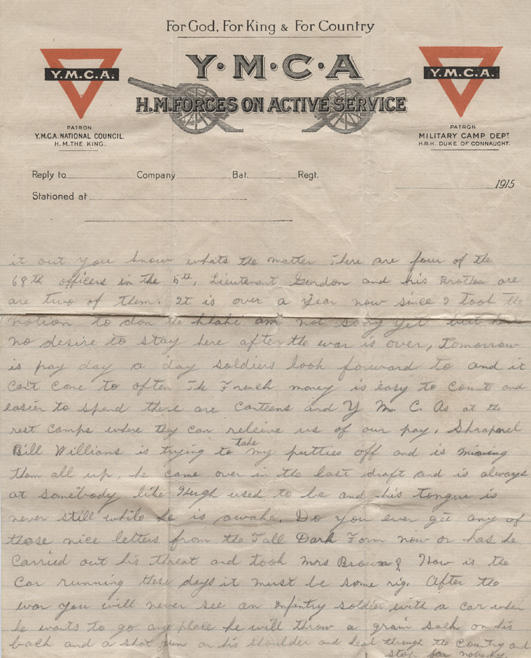 For God, For King & For Country
Y·M·C·A
H.M. FORCES ON ACTIVE SERVICE
Y.M.C.A.
PATRON
Y.M.C.A. NATIONAL COUNCIL.
H.M. THE KING.
Y.M.C.A.
PATRON
MILITARY CAMP DEPT
H.R.H. DUKE OF CONNAUGHT.
Reply to Company Bat. Regt.
Stationed at
1915
it out you know whats the matter There are four of the
68th officers in the 5th, Lieutenant Gordon and his Brother are
are two of them. It is over a Year now since I took the
notion to don the khake am not sorry yet but
no desire to stay here after the war is over, tomorrow
is pay day a day soldiers look forward to and it
cant come to often The French money is easy to count and
easier to spend there are canteens and Y M. C. As at the
rest camps where they can releive us of our pay. Shrapnel
Bill Willians is trying to take my putties off and is mixing
them all up. he came over in the last draft and is always
at somebody like Hugh used to be and his tongue is
never still while he is awake. Do you ever get any of
those nice letters from the Tall Dark Form now or has he
Carried out his threat and took Mrs Brown? How is the
Car running these days it must be some rig. After the
war you will never see an infantry soldier with a car when
he wants to go any place he will throw a grain sack on his
back and a shot gun on his shoulder and beat through the country and
stop for nobody.